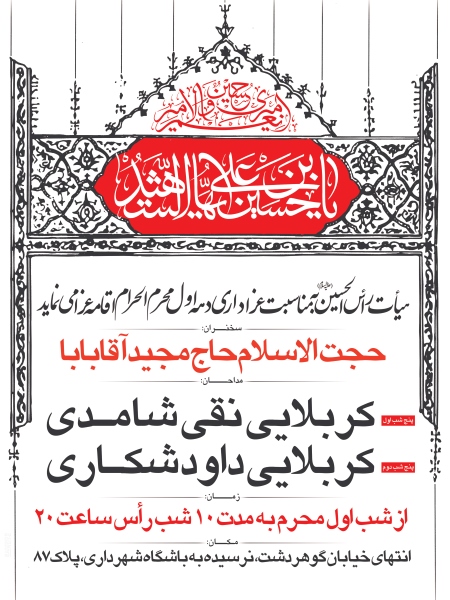 امیری حسین و نعم الامیر
یا حسین بن علی ایها الشهید
هیأت رأس الحسین (علیه السلام) بمناسبت عزاداری دهه اول محرم الحرام اقامه عزا می نماید
سخنران:
حجت الاسلام حاج مجید آقابابا
مداحان:
پنج شب اول کربلایی نقی شامدی
پنج شب دوم کربلایی داود شکاری
زمان:
از شب اول محرم به مدت ۱۰ شب رأس ساعت ۲۰
مکان:
انتهای خیابان گوهردشت، نرسیده به باشگاه شهرداری، پلاک ۸۷